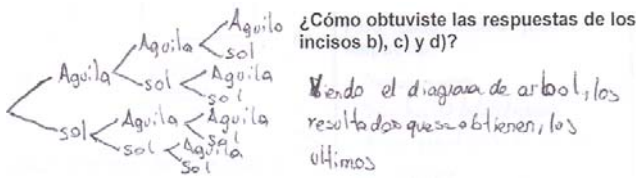 Aguilo
Aguila
sol
Aguila
Aguila
sol
sol
Aguila
Aguila
sol
sol
sol
Aguila
sol
¿Cómo obtuviste las respuestas de los
incisos b), c) y d)?
Viendo el diagrama de arbol, los
resultados que se obtienen, los
ultimos